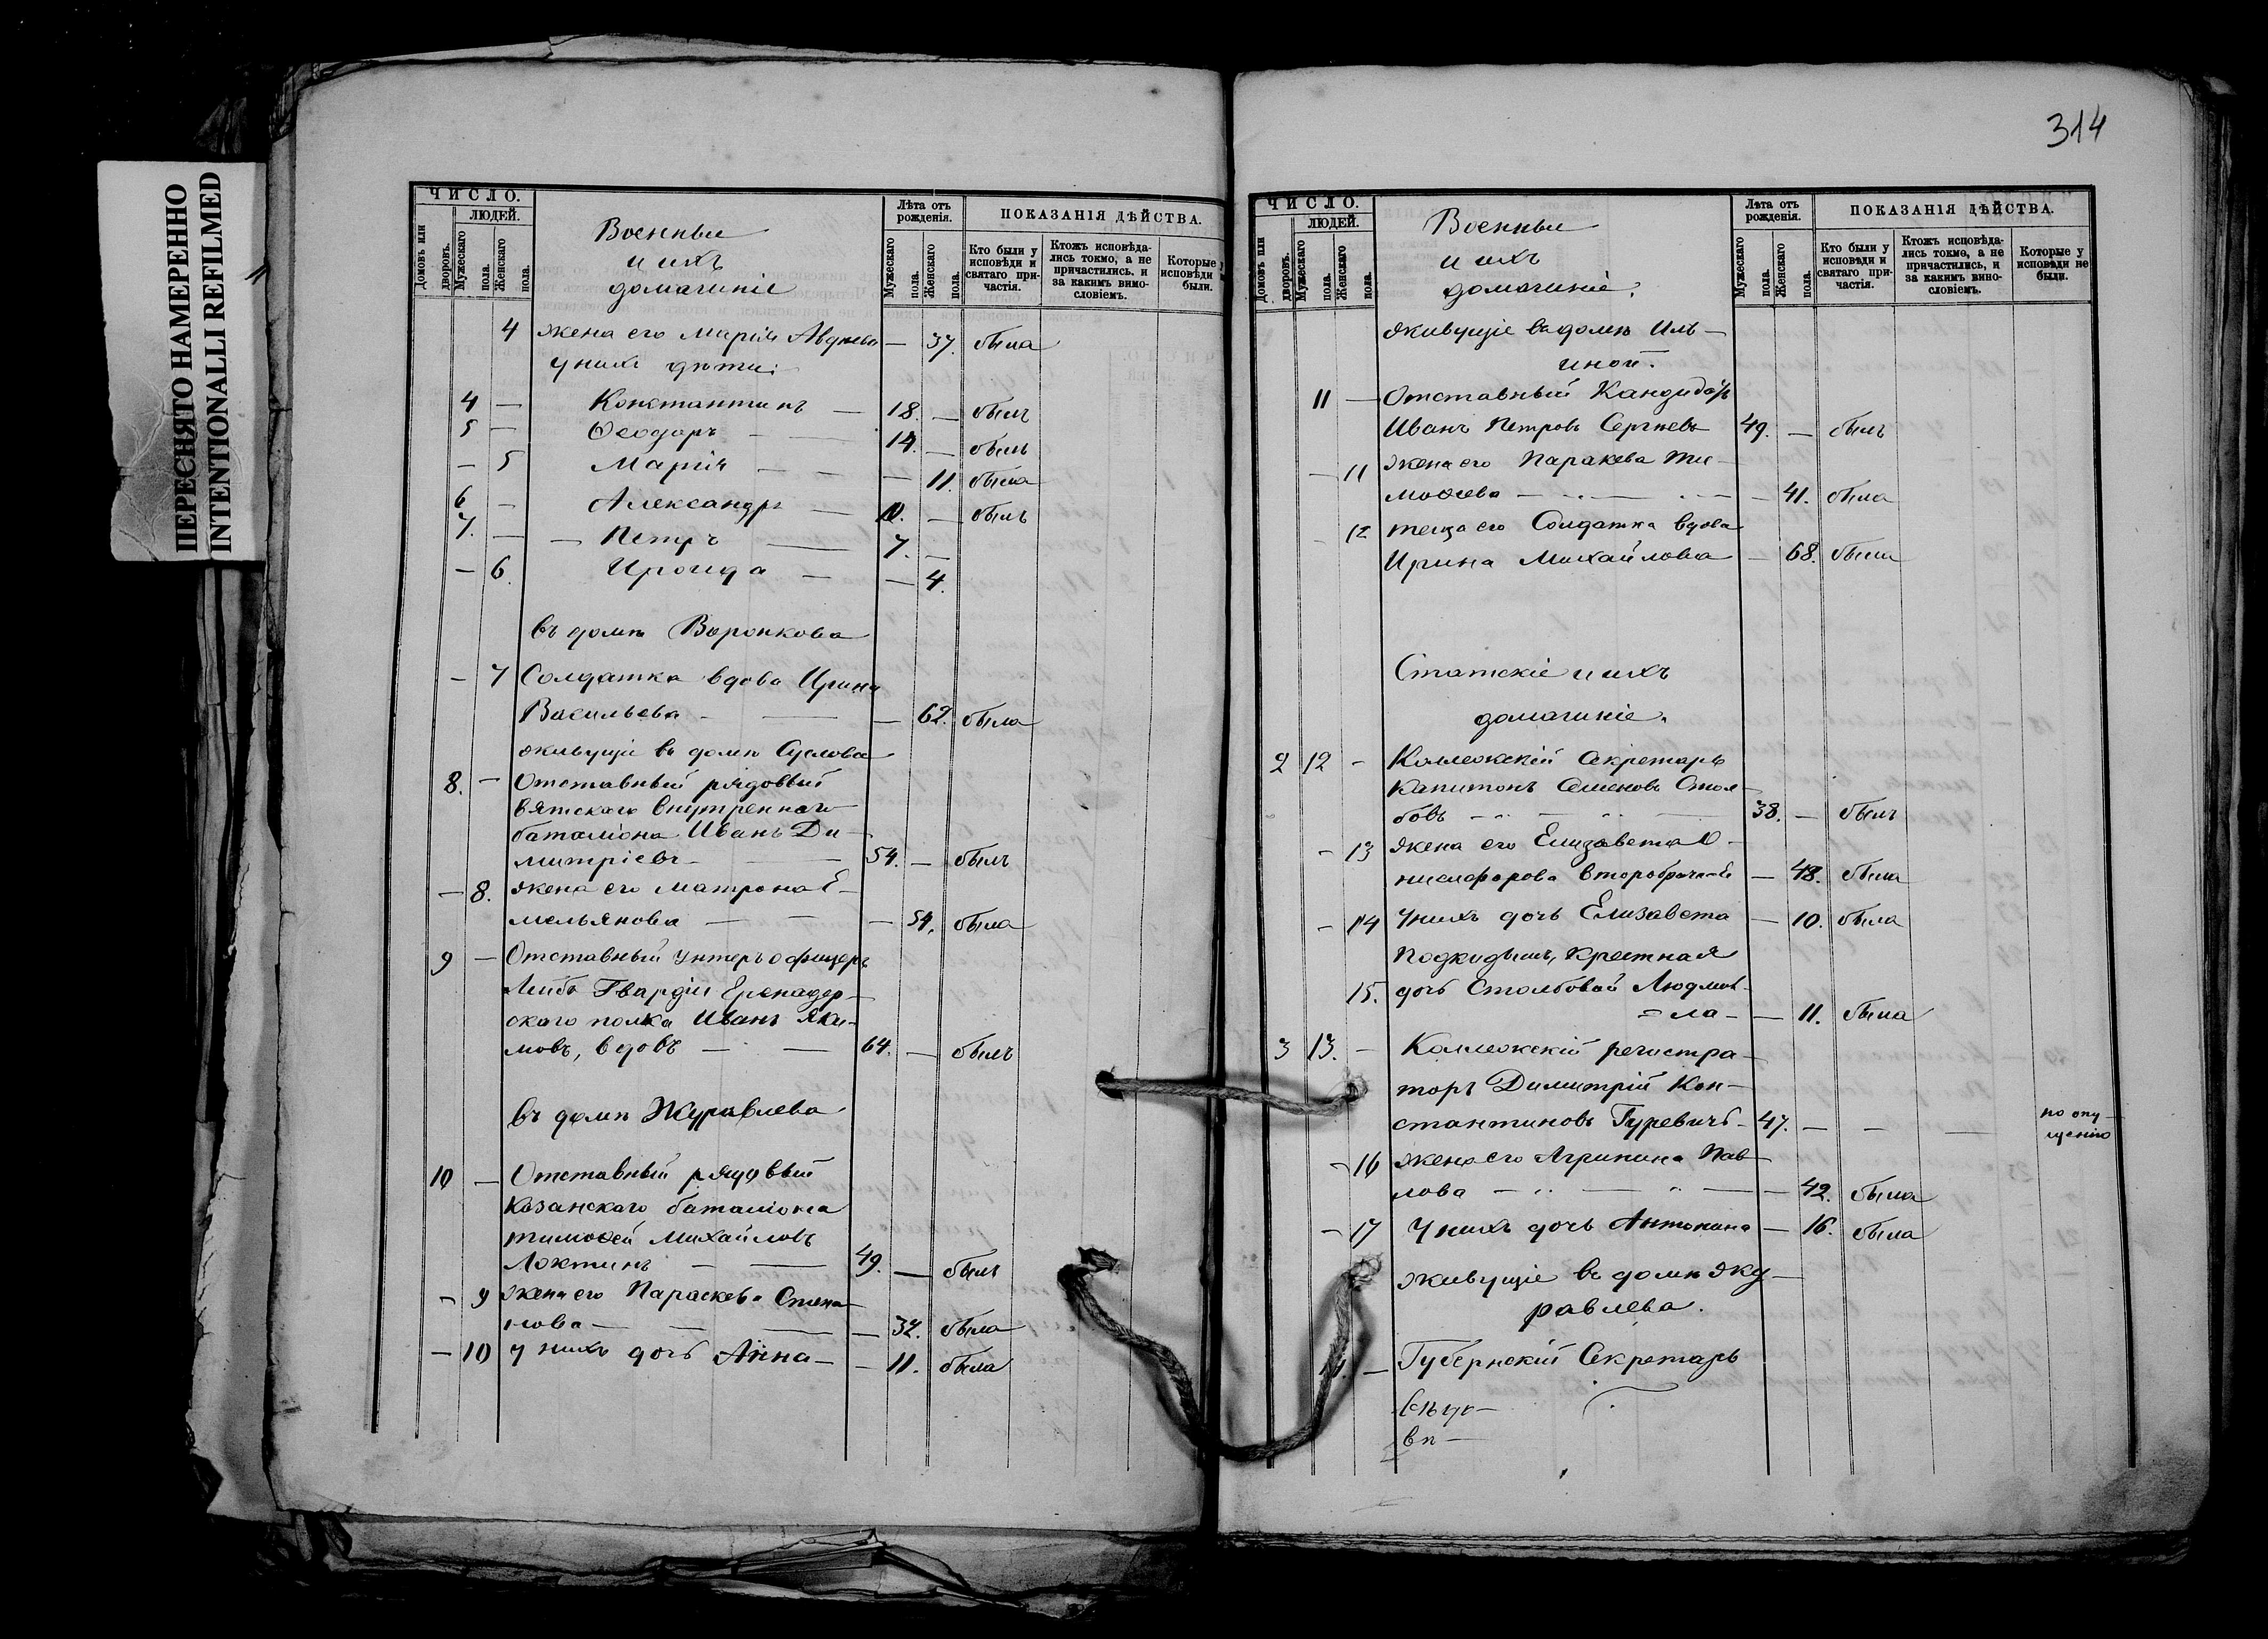 ПЕРЕСНЯТО НАМЕРЕННО
INTENTIONALLI REFILMED
ЧИСЛО.
ЛЮДЕЙ.
Домовъ или дворовъ.
Мужескаго пола.
Женскаго пола.
Военные
и ихъ
домашніе
Лѣта отъ рожденія.
Мужескаго пола.
Женскаго пола.
ПОКАЗАНІЯ ДѢЙСТВА.
Кто были у исповѣди и святаго причастія.
Ктожъ исповѣдались токмо, а не причастились, и за какимъ винословіемъ.
Которые у исповѣди были.
4 жена его Марія — 37. была
у нихъ дѣти:
4 — Константинъ — 18. — былъ
5 — Ѳеодоръ — 14. — былъ
— 5 Марія — — 11. была
6 — Александръ — 10. — былъ
7. — Петръ — 7. —
— 6. Ироида — — 4.
въ домѣ Воронкова
— 7 Солдатка вдова Ирина
Васильева — — 62. была
живущіе въ домѣ Суслова
8. — Отставный рядовый
Вятскаго внутренняго
баталіона Иванъ Ди-
митріевъ — 54. — былъ
— 8. жена его Матрона Е-
мельянова — — 54. была
9 — Отставный унтеръ офицеръ
Лейбъ Гвардіи Гренадер-
скаго полка Иванъ Яки-
мовъ, вдовъ — 64. — былъ
въ домѣ Журавлева
10 — Отставный рядовый
Казанскаго баталіона
Тимоѳей Михайловъ
Локтинъ — 49. — былъ
— 9 жена его Параскева Степа-
нова — — 37. была
— 10 у нихъ дочь Анна — — 11. была
314
ЧИСЛО.
ЛЮДЕЙ.
Домовъ или дворовъ.
Мужескаго пола.
Женскаго пола.
Военные
и ихъ
домашніе.
Лѣта отъ рожденія.
Мужескаго пола.
Женскаго пола.
ПОКАЗАНІЯ ДѢЙСТВА.
Кто были у исповѣди и святаго причастія.
Ктожъ исповѣдались токмо, а не причастились, и за какимъ винословіемъ.
Которые у исповѣди не были.
живущіе въ домѣ Иль-
иной.
11 — Отставный
Иванъ Петровъ Сергѣевъ 49. — былъ
— 11 жена его Паракева Ти-
моѳеева — — 41. была
— 12 теща его Солдатка вдова
Ирина Михайлова — 68. была
Статскіе и ихъ
домашніе.
2 12 — Коллежскій Секретарь
Капитонъ Семеновъ Стол-
бовъ — 38. — былъ
— 13 жена его Елизавета О-
нисифорова — 48. была
— 14 у нихъ дочь Елизавета — 10. была
Подкидышъ, крестная
15. дочь Столбовой Людми-
= ла — — 11. была
3 13. — Коллежскій регистра-
торъ Димитрій Кон-
стантиновъ Гуревичъ — 47. — — — по опу-
щенію
— 16 жена его Агрипина Пав-
лова — — 42. была
— 17 у нихъ дочь Антонина — 16. была
живущіе въ домѣ Жу-
равлева.
— Губернскій Секретарь